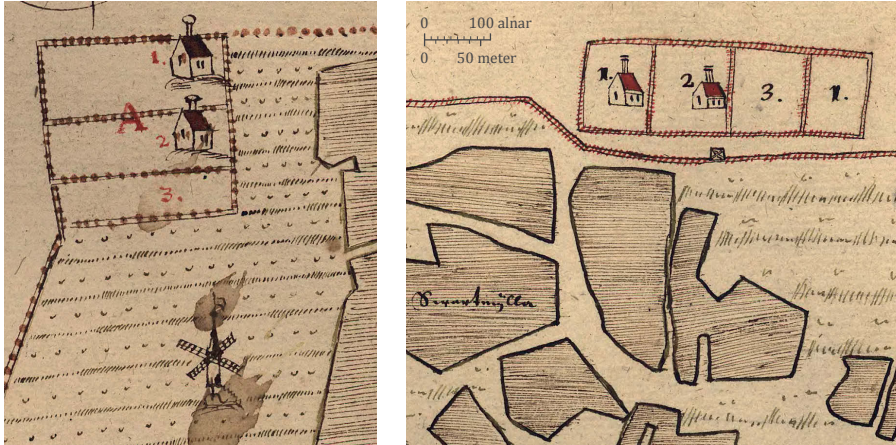 1.
A
2
3.
0 100 alnar
0 50 meter
1.
2
3.
1.